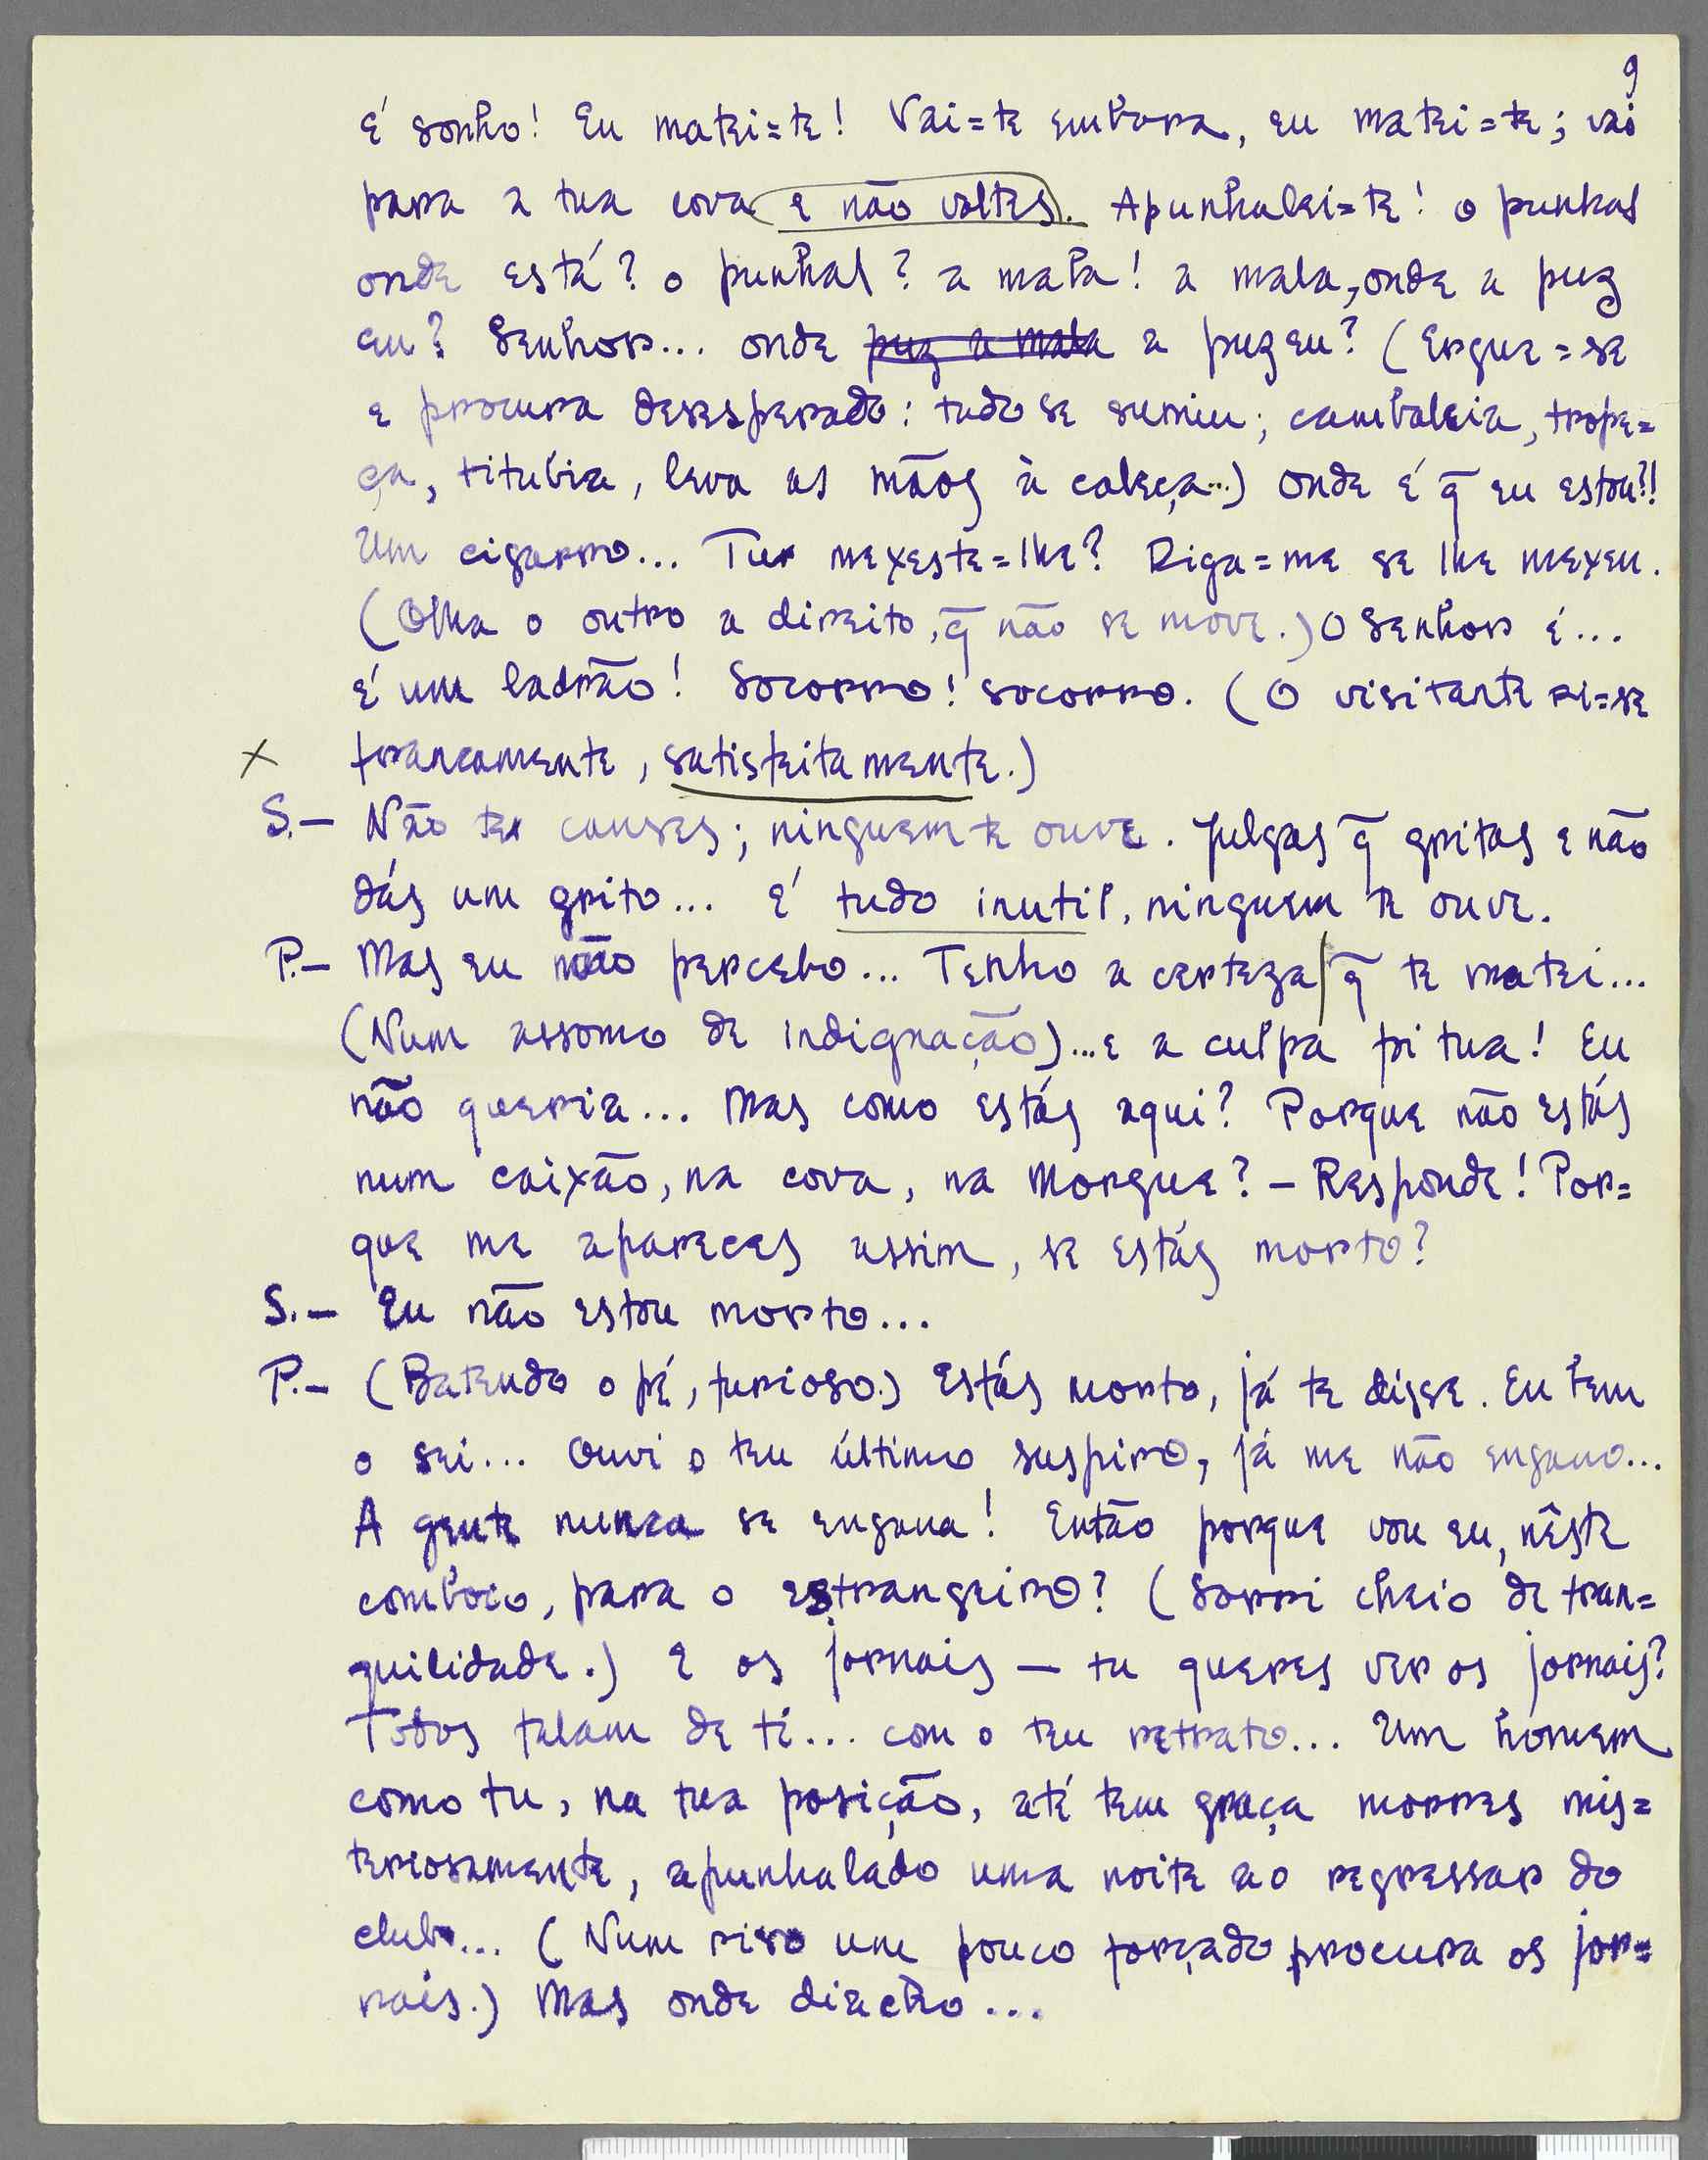 9
é sonho! Eu matei=te! Vai=te embora, eu matei=te; vai
para a tua cova e não voltes. Apunhalei=te! o punhal
onde está? o punhal? a mala! a mala, onde a puz
eu? Senhor... onde puz a mala a puz eu? (Ergue=se
e procura desesperado: tudo se sumiu; cambaleia, trope=
ça, titubia, leva as mãos à cabeça...) Onde é q̃ eu estou?!
Um cigarro... Tu mexeste=lhe? Diga=me se lhe mexeu.
(Olha o outro a direito, q̃ não se move.) O Senhor é...
é um ladrão! Socorro! socorro. (O visitante ri=se
x francamente, satisfeitamente.)
S.— Não te canses; ninguem te ouve. Julgas q̃ gritas e não
dás um grito... É tudo inutil, ninguem te ouve.
P.— Mas eu não percebo... Tenho a certeza q̃ te matei...
(Num assomo de indignação)...e a culpa foi tua! Eu
não queria... Mas como estás aqui? Porque não estás
num caixão, na cova, na Morgue? — Responde! Por=
que me apareces assim, se estás morto?
S.— Eu não estou morto...
P.— (Batendo o pé, furioso.) Estás morto, já te disse. Eu bem
o sei... Ouvi o teu último suspiro, já me não engano...
A gente nunca se engana! Então porque vou eu, nêste
comboio, para o estrangeiro? (Sorri cheio de tran=
quilidade.) E os jornais — tu queres ver os jornais?
Todos falam de ti... com o teu retrato... Um homem
como tu, na tua posição, até tem graça morres mis=
teriosamente, apunhalado uma noite ao regressar do
club... (Num riso um pouco forçado procura os jor=
nais.) Mas onde diacho...